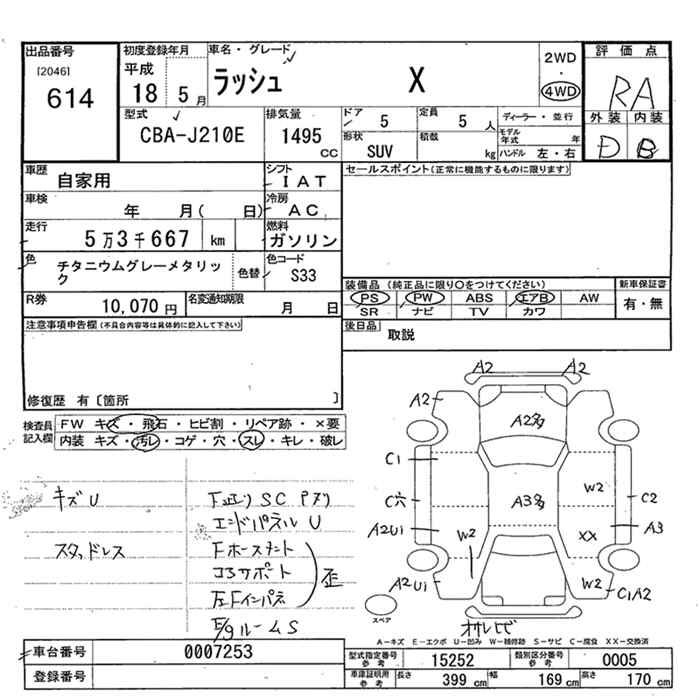 出品番号
[2046]
614
初度登録年月
平成
18 5月
車名・グレード
ラッシュ X
2WD
・
4WD
評価点
RA
外装 内装
D B
型式
CBA-J210E
排気量
1495
CC
ドア
5
定員
5人
ディーラー・並行
形状
SUV
積載
kg
モデル年式 年
ハンドル 左・右
車歴
自家用
シフト
IAT
車検
年 月( 日)
冷房
AC
走行
5万3千667 km
燃料
ガソリン
色
チタニウムグレーメタリック
色替
色コード
S33
R券
10,070円
名変通知期限
月 日
セールスポイント(正常に機能するものに限ります)
装備品(純正品に限り○をつけてください)
新車保証書
PS PW ABS エアB AW
SR ナビ TV カワ
有・無
後日品
取説
注意事項申告欄(不具合内容等は具体的に記入して下さい)
修復歴 有〔箇所 〕
検査員記入欄
FW キズ・飛石・ヒビ割・リペア跡・×要
内装 キズ・汚レ・コゲ・穴・スレ・キレ・破レ
キズU
スタッドレス
SC
エンドパネルU
Fホースメント
コアサポート
左Fインパネ
歪
E/gルームS
A2 A2
A2
A2多
C1
C穴
A2U1
A2U1
W2
A3多
W2
XX
W2
C2
A3
C1A2
スペア
A-キズ E-エクボ U-凹み W-補修跡 S-サビ C-腐食 XX-交換済
車台番号
0007253
登録番号
型式指定番号
参考
15252
類別区分番号
参考
0005
車庫証明用
参考
長さ
399 cm
幅
169 cm
高さ
170 cm